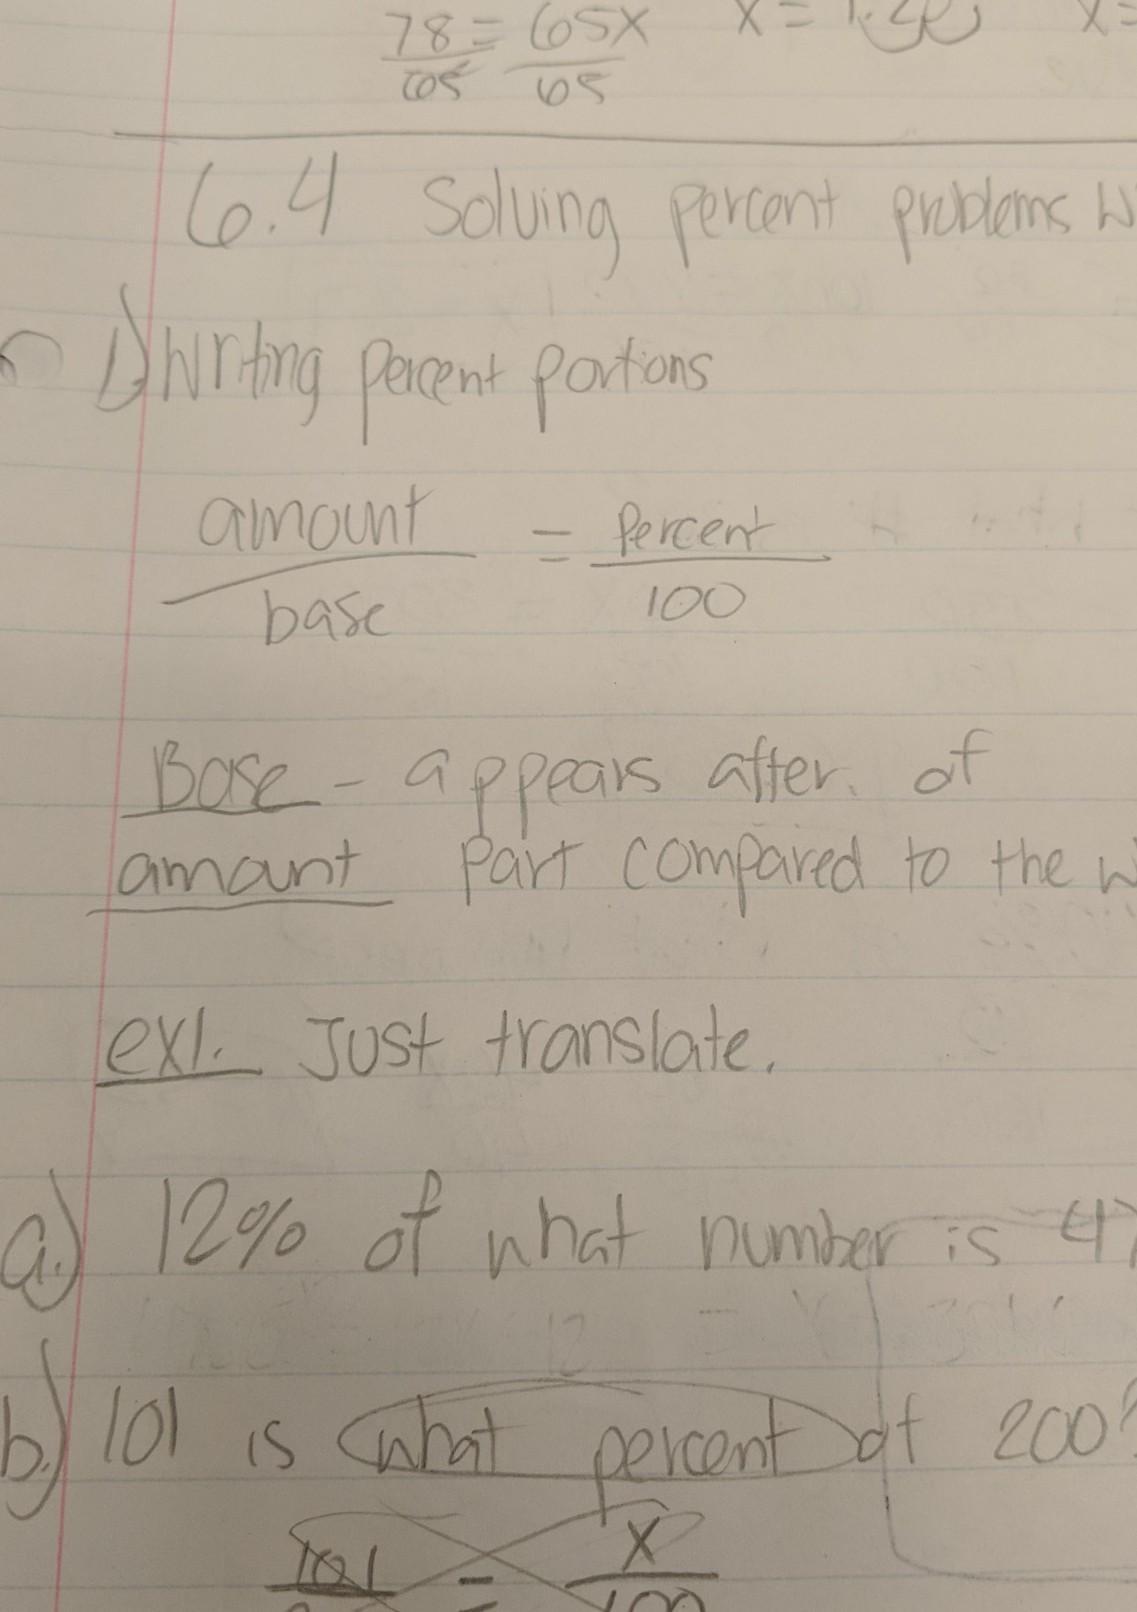 78 = 65x x = 1.20 x =
65 65
6.4 Solving percent problems w
1.) Writing percent portions
amount = Percent
base 100
Base - appears after of
amount part compared to the w
ex1. Just translate.
a.) 12% of what number is 47
b.) 101 is what percent of 200?
101 = x
100